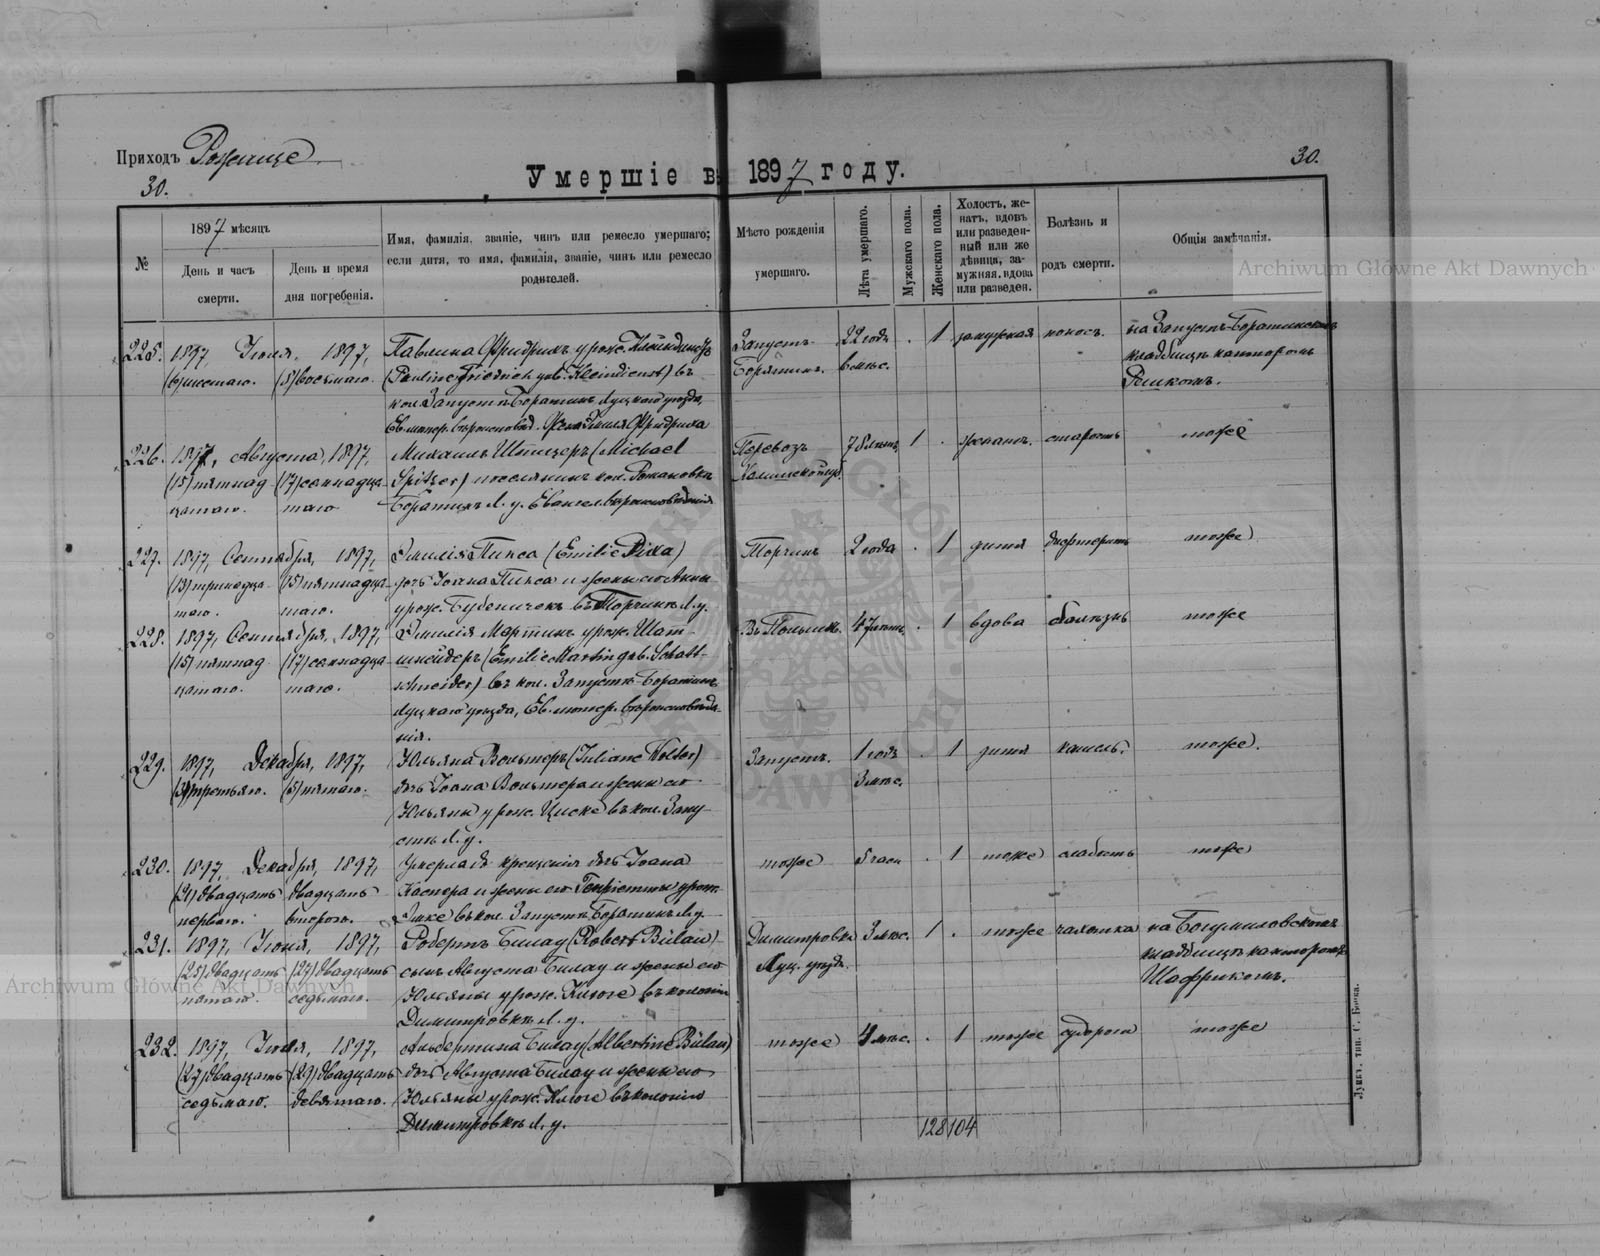 Приходъ Рожище
30.
Умершіе въ 1897 году.
30.
№
1897 мѣсяцъ
День и часъ смерти.
День и время дня погребенія.
Имя, фамилія, званіе, чинъ или ремесло умершаго; если дитя, то имя, фамилія, званіе, чинъ или ремесло родителей.
Мѣсто рожденія умершаго.
Лѣта умершаго.
Мужскаго пола.
Женскаго пола.
Холостъ, женатъ, вдовъ или разведенный или же дѣвица, замужняя, вдова или разведен.
Болѣзнь и родъ смерти.
Общія замѣчанія.
225. 1897 Іюля, 1897, Павлина Фридрихъ урож. Клейндинстъ Запустъ- 22 года . 1 замужняя поносъ. на Запустъ-Боратинскомъ
(6) шестаго. (8) восьмаго. (Pauline Friedrich geb. Kleindienst) въ Борятинъ. 6 мѣс. кладбищѣ канторомъ
кол. Запустъ Боратинъ Луцкаго уѣзда,
Ев. лютер. вѣроисповѣд.
226. 1897, Августа, 1897, Михаилъ Шпицеръ (Michael Перевозъ 78 лѣтъ 1 . женатъ. старость тоже
(15) пятнад- (17) семнадца- Spitzer) поселянинъ кол. Романовка
цатаго. таго Боратинъ Л. у. Евангел. вѣроисповѣданія
227. 1897, Сентября, 1897, Эмилія Пикса (Emilie Pixa) Торчинъ 2 года . 1 дитя дифтеритъ тоже
(13) тринадца- (15) пятнадца- дочь Іоана Пикса и жены его Анны
таго. таго. урож. Бубеничекъ въ Торчинѣ Л. у.
228. 1897, Сентября, 1897, Эмилія Мартинъ урож. Шат- Въ Польшѣ. 47 лѣтъ . 1 вдова болѣзнь тоже
(15) пятнад- (17) семнадца- шнейдеръ (Emilie Martin geb. Schatt-
цатаго. таго. schneider) въ кол. Запустъ-Боратинъ
Луцкаго уѣзда, Ев. лютер. вѣроисповѣда-
нія.
229. 1897, Декабря, 1897, Юльяна Вольтеръ (Juliane Wolter) Запустъ. 1 годъ . 1 дитя кашель. тоже.
(3) третьяго. (5) пятаго. дочь Іоана Вольтера и жены его 3 мѣс.
Юльяны урож. Циске въ кол. Запу-
стъ Л. у.
230. 1897, Декабря, 1897, Умерла до крещенія дочь Іоана тоже . 1 тоже слабость тоже
(21) двадцать двадцать Каспера и жены его Генріетты урож.
перваго. второго. въ кол. Запустъ Боратинъ Л. у.
231. 1897, Іюня, 1897, Робертъ Билау (Robert Bülau) Димитровка 3 мѣс. 1 . тоже чахотка на Богумиловскомъ
(25) двадцать (27) двадцать сынъ Августа Билау и жены его Луц. уѣзд. кладбищѣ канторомъ
пятаго. седьмаго. Юльяны урож. Клюге въ колоніи Шафрикомъ.
Димитровкѣ Л. у.
232. 1897, Іюля, 1897, Альбертина Билау (Albertine Bülau) тоже 4 мѣс. . 1 тоже судорога тоже
(27) двадцать (29) двадцать дочь Августа Билау и жены его
седьмаго. девятаго. Юльяны урож. Клюге въ колоніи
Димитровкѣ Л. у.
128 104
Луцкъ, тип. С. Бочка.
Archiwum Główne Akt Dawnych
Archiwum Główne Akt Dawnych